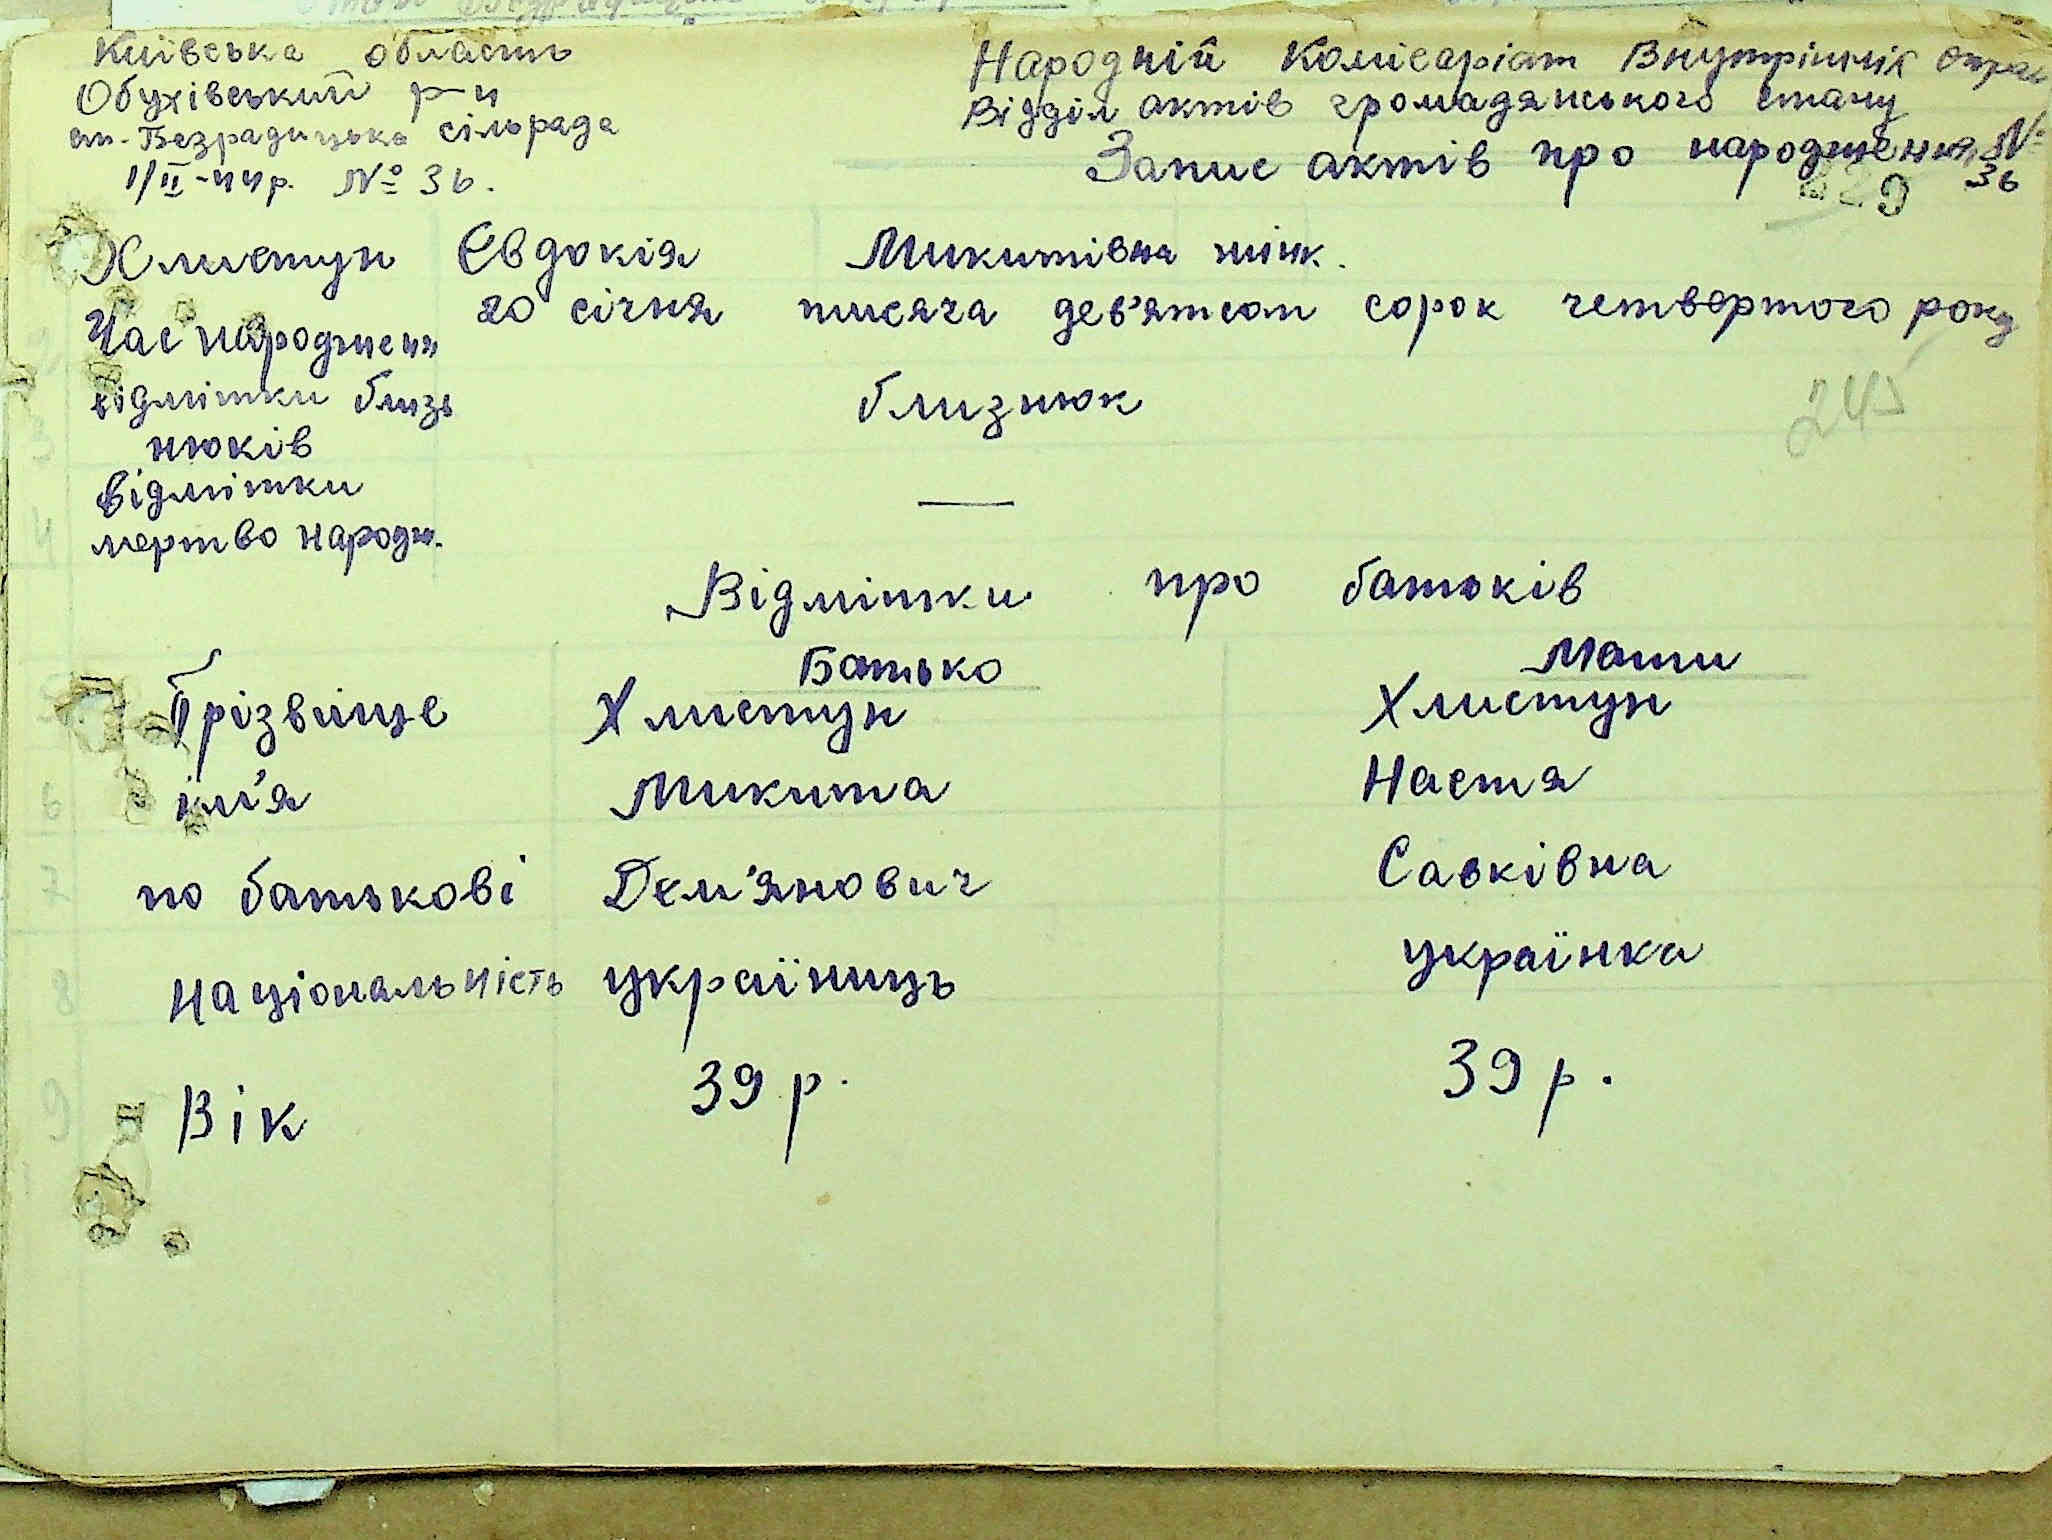 Київська область
Обухівський р-н
ст-Безрадицька сільрада
1/II-44р. № 36.
Народній Комісаріат Внутрішніх справ
Відділ актів громадянського стану
Запис актів про народження №
36
229
Хлистун Євдокія Микитівна жінк.
Час народження 20 січня тисяча дев'ятсот сорок четвертого року
відмітки близь близнюк
нюків
245
відмітки —
мертво народж.
Відмітки про батьків
Батько Мати
Прізвище Хлистун Хлистун
ім'я Микита Настя
по батькові Дем'янович Савківна
Національність українець українка
Вік 39 р. 39 р.
2
3
4
5
6
7
8
9